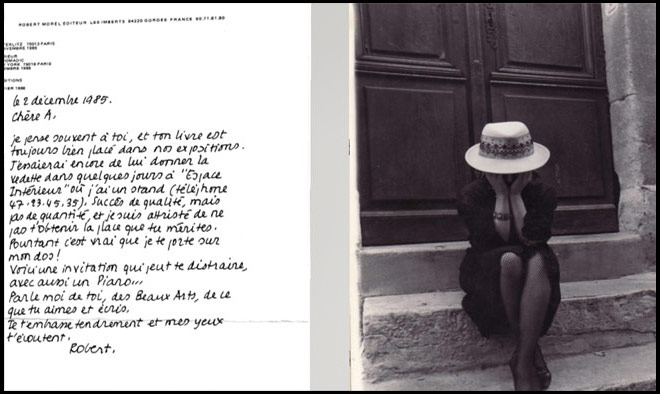 ROBERT MOREL ÉDITEUR LES IMBERTS 84220 GORDES FRANCE 90.71.81.80
75013 PARIS
75016 PARIS
le 2 décembre 1985.
Chère A,
je pense souvent à toi, et ton livre est
toujours bien placé dans nos expositions.
J'essaierai encore de lui donner la
vedette dans quelques jours à "Espace
Intérieur" où j'ai un stand (téléphone
47.93.45.35). Succès de qualité, mais
pas de quantité, et je suis attristé de ne
pas t'obtenir la place que tu mérites.
Pourtant c'est vrai que je te porte sur
mon dos!
Voici une invitation qui peut te distraire,
avec aussi un Piano...
Parle moi de toi, des Beaux Arts, de ce
que tu aimes et écris.
Je t'embrasse tendrement et mes yeux
t'écoutent.
Robert.